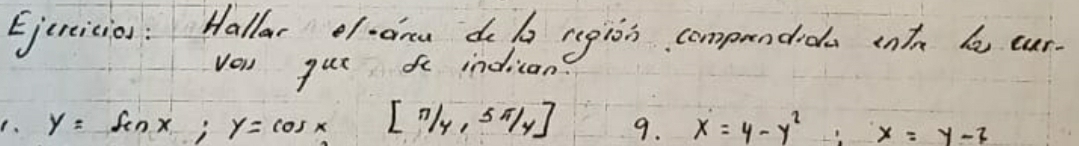 Ejercicios: Hallar el área de la región comprendida entre las cur-
vas que se indican.
1. y = sen x ; y = cos x [π/4, 5π/4] 9. x = 4 - y² ; x = y - 2